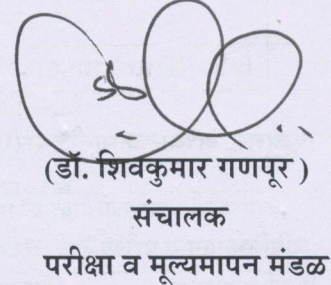 (डॉ. शिवकुमार गणपूर )
संचालक
परीक्षा व मूल्यमापन मंडळ